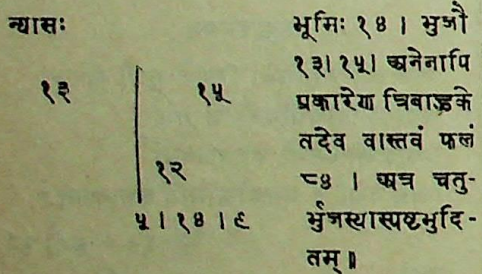 न्यासः
१३
१५
१२
५ । १४ । ९
भूमिः १४ । भुजौ
१३। १५। अनेनापि
प्रकारेण त्रिबाहुके
तदेव वास्तवं फलं
८४ । अत्र चतु-
र्भुजस्यास्पष्टमुदि-
तम् ॥